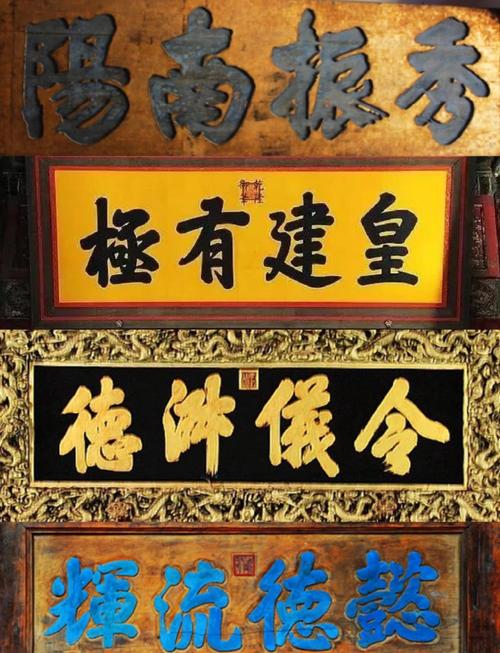 秀振南陽
乾隆御筆
皇建有極
令儀淑德
懿德流輝